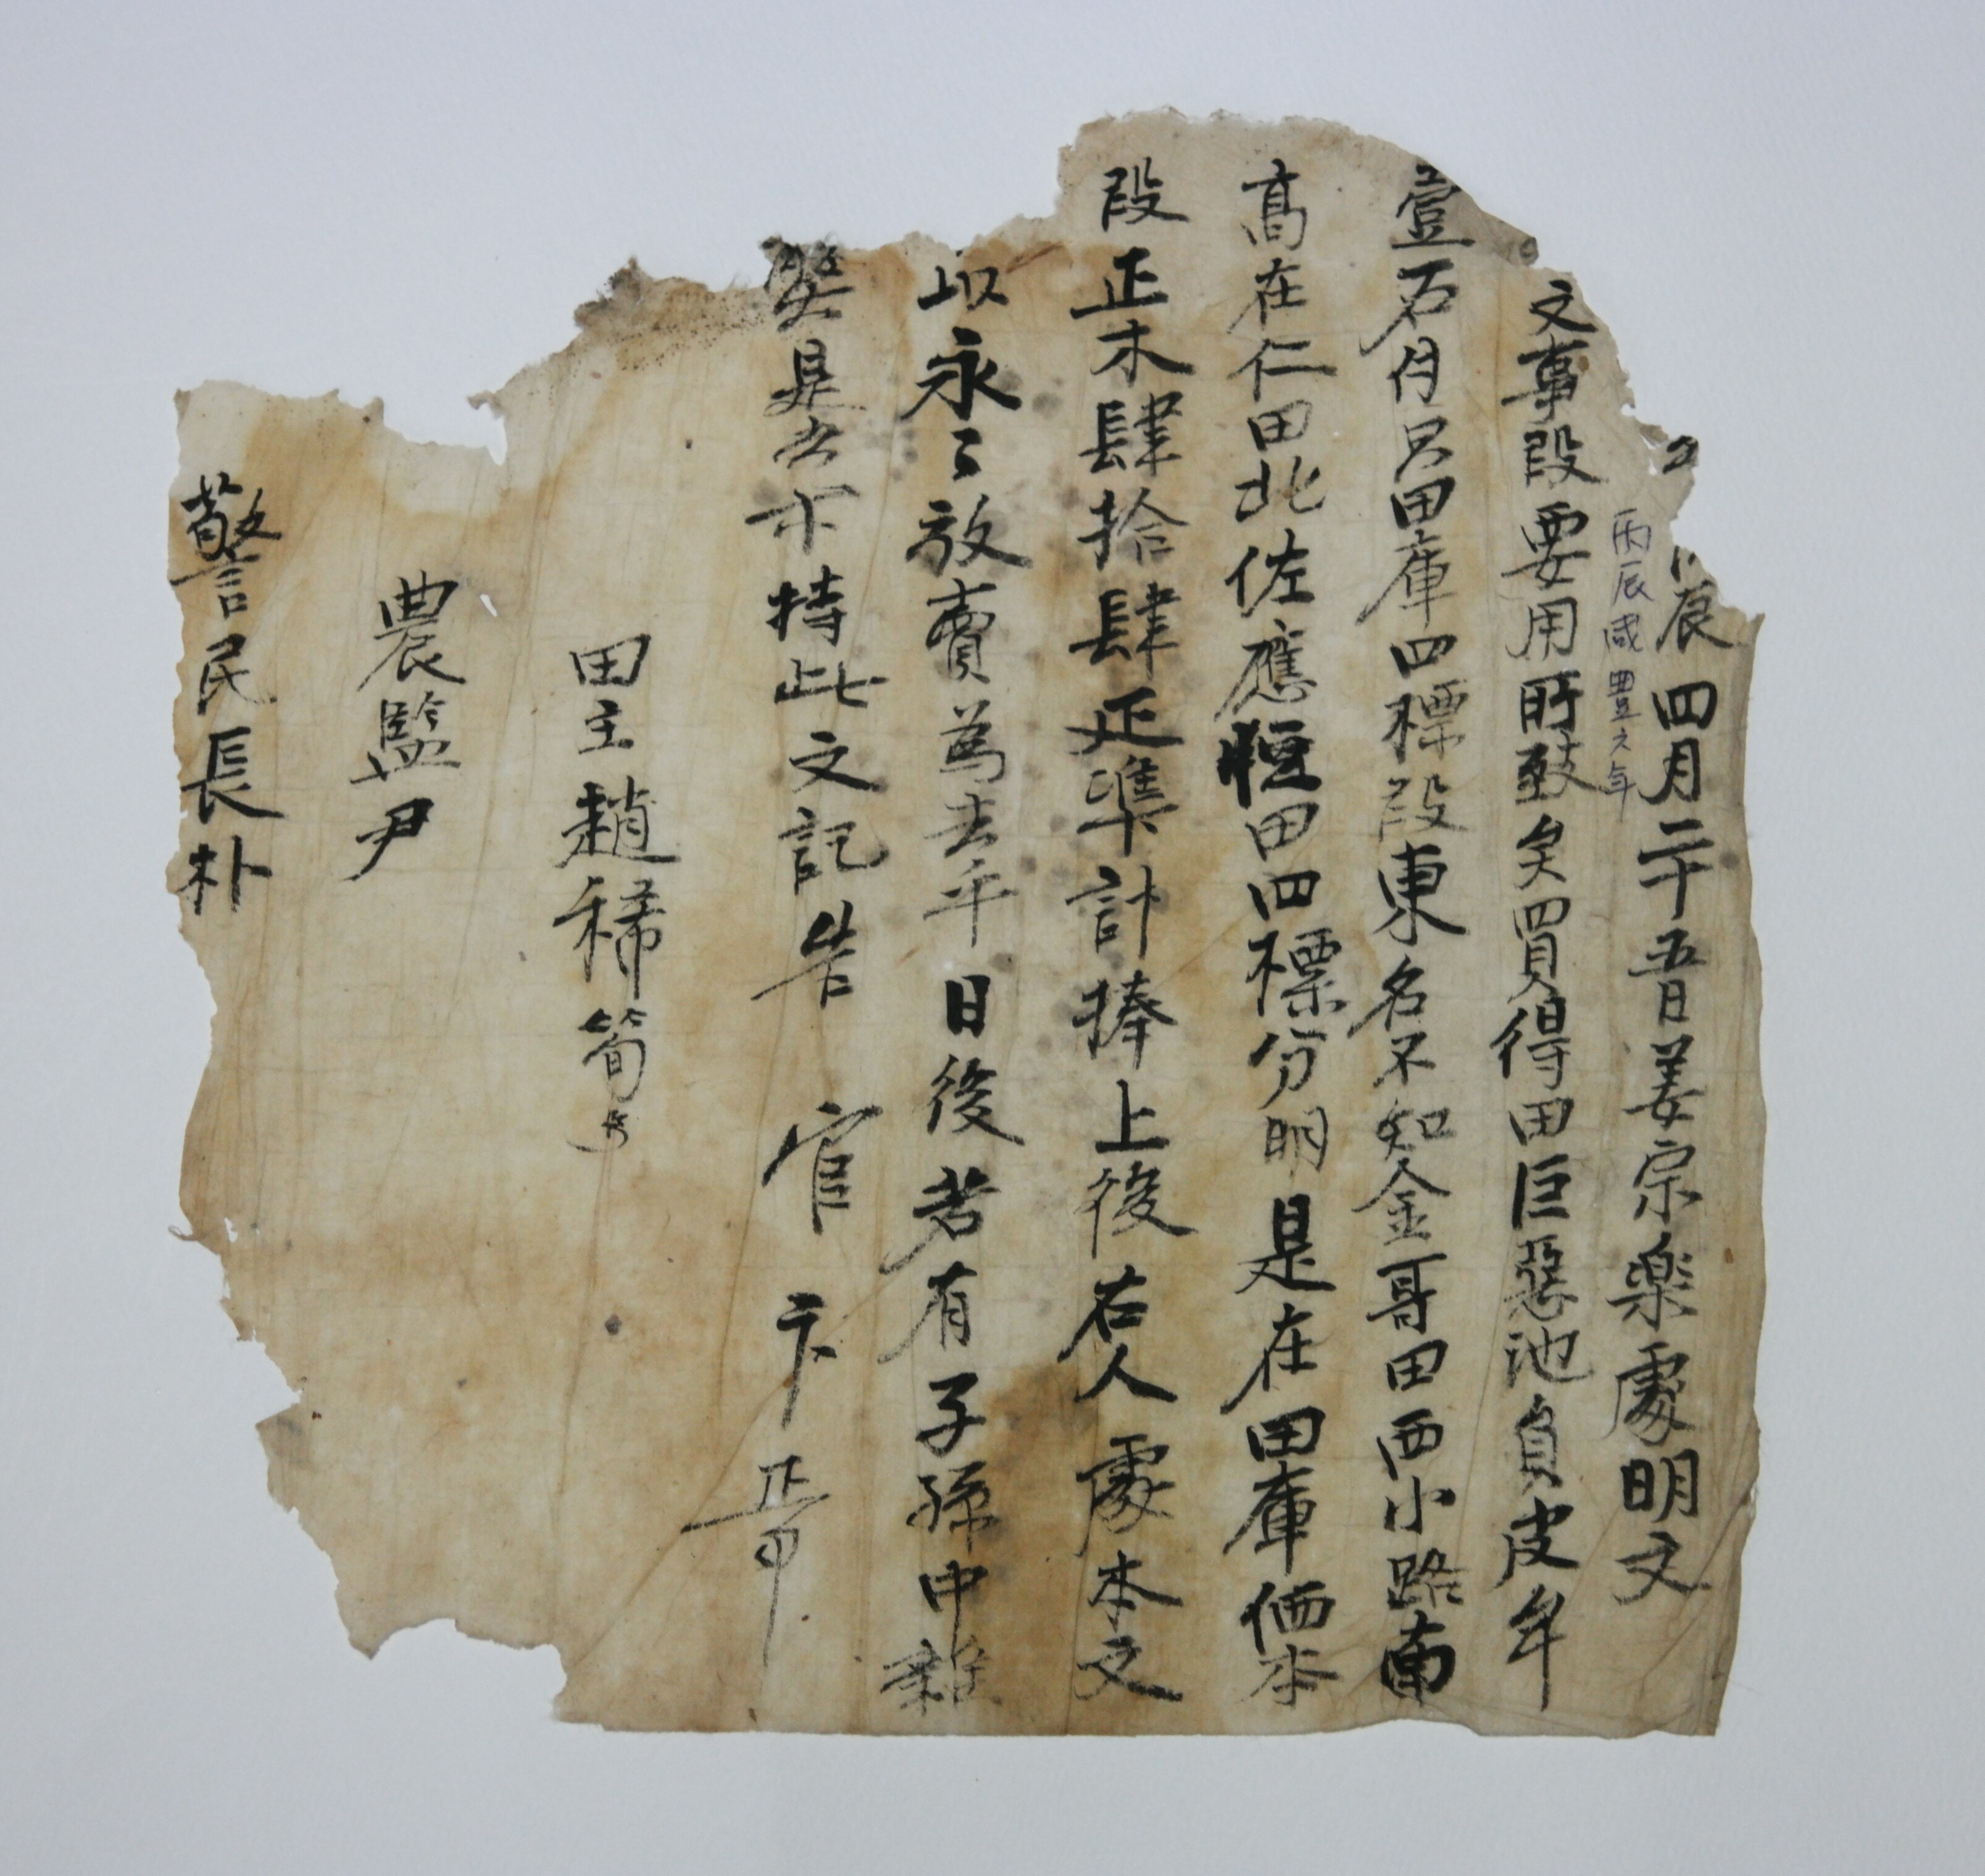 辰四月二十五日姜宗樂處明文
丙辰咸豊六年
文事段要用所致矣買得田巨惡池員皮牟
壹石付只田庫四標段東名不知金哥田西小路南
高在仁田北佐應恒田四標分明是在田庫価本
段正木肆拾肆疋準計捧上後右人處本文
以永〻放賣爲去乎日後若有子孫中雜
是去等持此文記告官卞正事
田主趙稀筍
農監尹
警民長朴